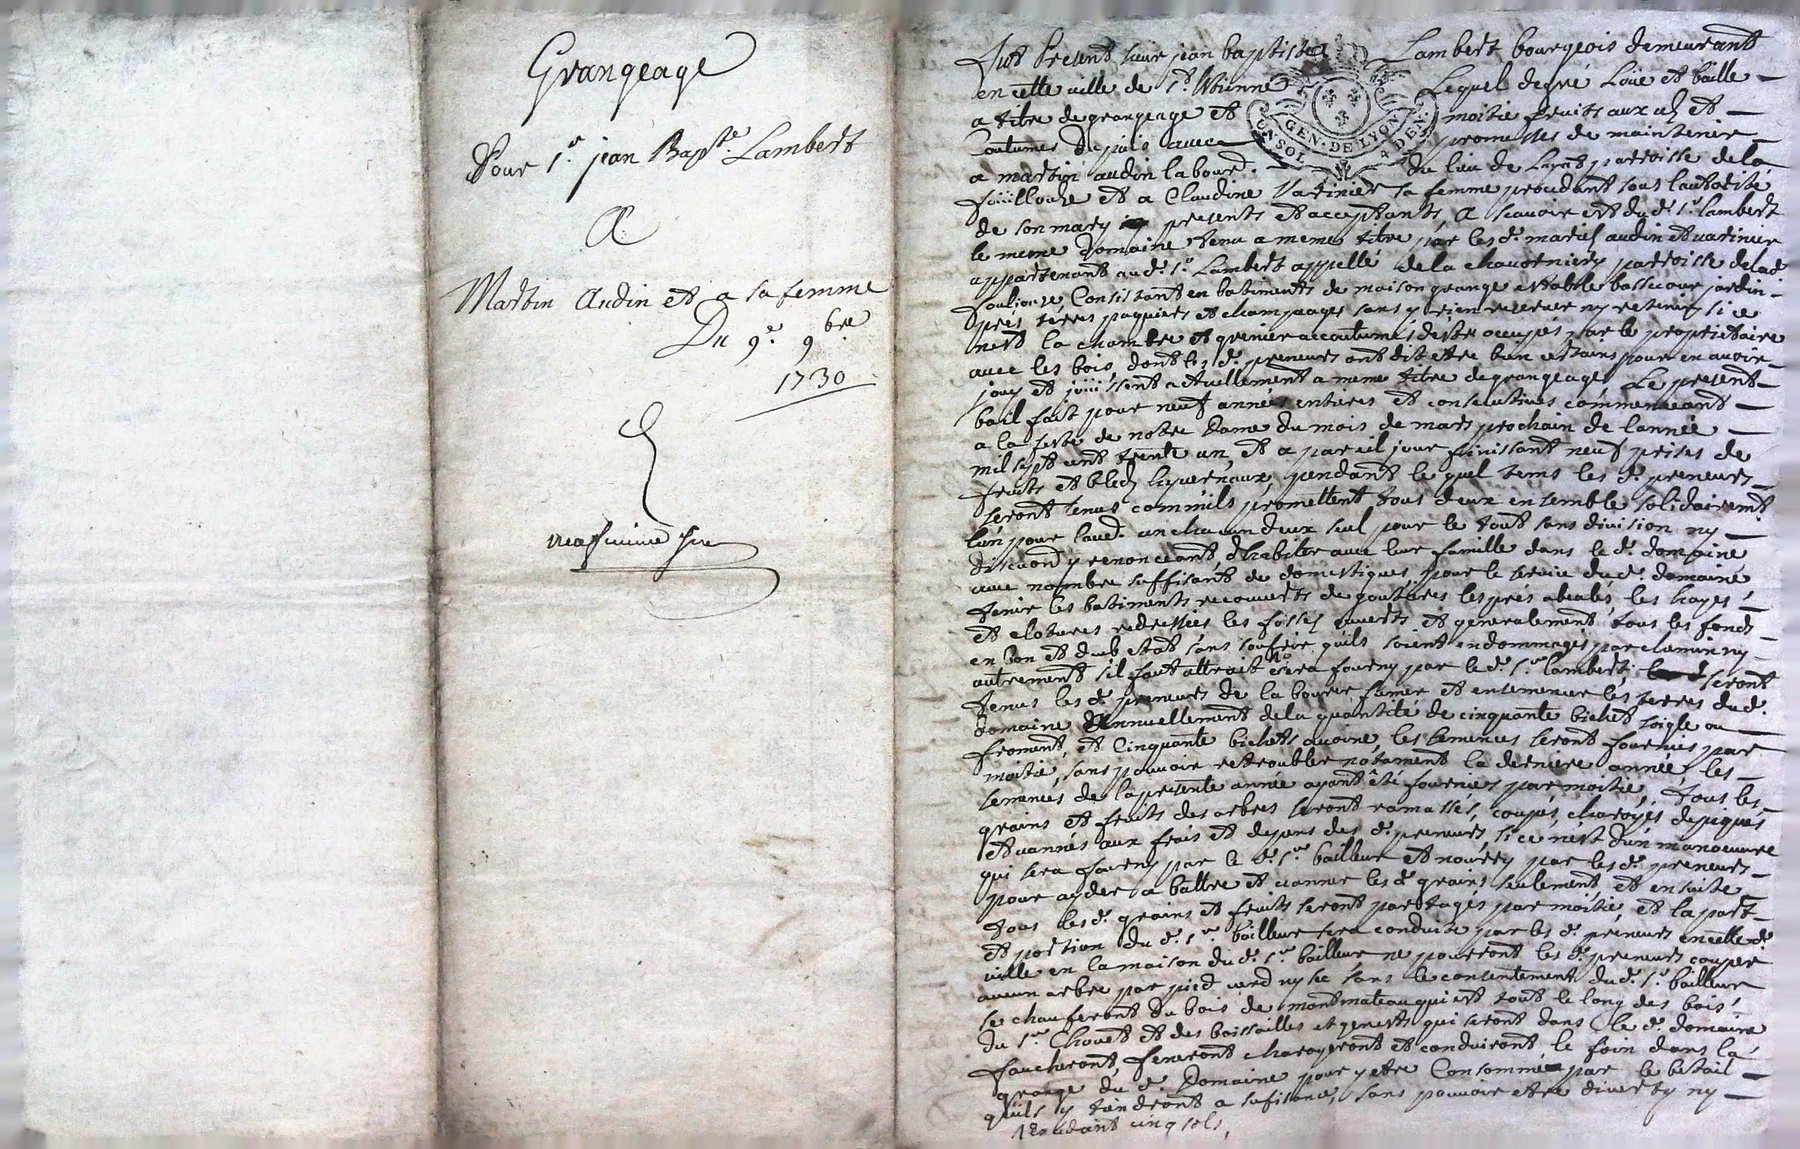 Grangeage
Pour Sr. jean Bapte. Lambert
A
Martin Audin et a sa femme
Du 9e. 9bre
1730
Fut present sieur jean baptiste Lambert bourgeois demeurant
en cette ville de St. Lequel de gré Loüe et baille
a titre de grangeage et moitié fruits aux us et
Coutumes Du païs avec promesses de maintenir
a martin audin labour. du lieu de parroisse de la
foüillouze et a Claudine Varinier sa femme procedant sous lautorité
de son mary presents et acceptants, A scavoir est du d. sr. lambert
le meme Domaine tenu a meme titre par les d. mariés audin et varinier
appartenant au d. sr. Lambert appellé de la parroisse de lad.
Consistant en batiments de maison grange estable bassecour jardin
pres terres paquiers et champeages sans y rien reserver ny retenir si ce
nest la chambre et grenier accoutumés destre occupés par le proprietaire
avec les bois, dont les d. preneurs ont dit etre bien certains pour en avoir
jouy et joüissent actuellement a meme titre de grangeage, Le present
bail fait pour neuf années entieres et consecutives commenceant
a la feste de notre Dame du mois de mars prochain de lannée
mil sept cent trente un, et a pareil jour finissant neuf prises de
fruits et bleds pendant le quel tems les d. preneurs
seront tenus comm'ils promettent tous deux ensemble solidairemt.
lun pour laud. un chacun deux seul pour le tout sans division ny
y renonceant, dhabiter avec leur famille dans le d. domaine
avec nombre suffisant de domestiques, pour le service du d. domaine
tenir les batiments recouverts de goutieres les pres les hayes
et clotures redressées les fossés ouverts et generalement tous les fonds
en bon et dub etat sans soufrir quils soient endommagés par chemin ny
autrement sil faut attrait sera fourny par le d. sr. lambert, seront
tenus les d. preneurs de labourer fumer et ensemencer les terres du d.
domaine annuellement de la quantité de cinquante bichets soigle ou
froment, et Cinquante bichets avoine, les semences seront fournies par
moitié, sans pouvoir retroubler notament la derniere année, les
semences de la presente année ayant été fournies par moitié, tous les
grains et fruits des arbres seront ramassés, coupés, charoyés depiqués
et vannés aux frais et depens des d. preneurs, si ce nest dun manoeuvre
qui sera fourny par le d. sr. bailleur et nourry par les d. preneurs
pour ayder a battre et vanner les d. grains seulement, et ensuite
tous les d. grains et fruits seront partagés par moitié, et la part
et portion du d. sr. bailleur sera conduite par les d. preneurs en cette d.
ville en la maison du d. sr. bailleur ne pourront les d. preneurs couper
aucun arbre par pied verd ny sec sans le consentement du d. sr. bailleur
se chauferont du bois de qui est tout le long des bois
du sr. Chovet et des boissailles et genests qui seront dans le d. domaine
faucheront, feneront charoyeront et conduiront le foin dans la
grange du d. Domaine pour y etre Consommé par le betail
quils y tiendront a sufisance, sans pouvoir etre diverty ny
cinq sols,
GEN. DE LYON